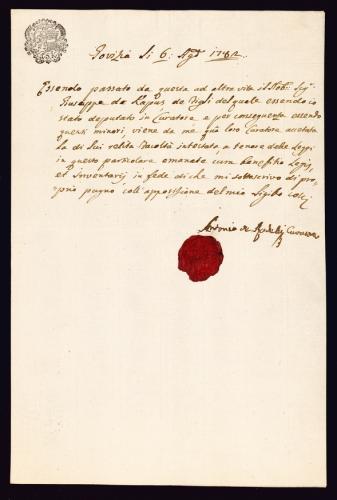 Gorizia li 6: Agto 1782
Essendo passato da questa ad altra vita il Nob: Sigr
Giuseppe de del quale essendo io
stato deputato in Curatore e per conseguenza essendo
questi minori, viene da me qua loro Curatore accetata
la di Lui relita facoltà intestata, a tenore delle Leggi
in questo particolare emanate cum benefitio Legis,
et Inventarij in fede di che mi sottoscrivo di pro-
prio pugno coll'apposizione del mio Sigillo
Antonio de Curatore